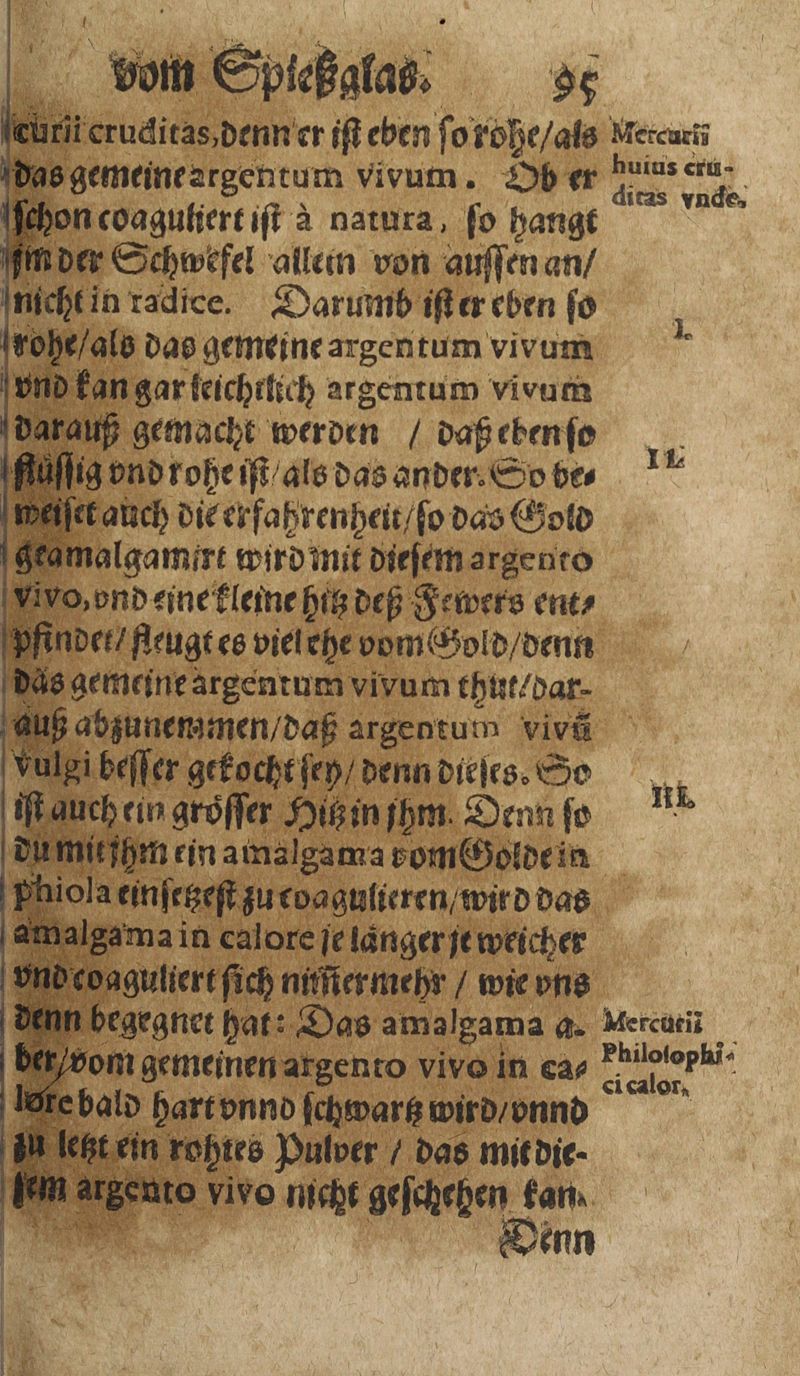 vom Spießglas. 95
curii cruditas, denn er ist eben so rohe/als
das gemeine argentum vivum. Ob er
schon coaguliert ist à natura, so hangt
jm der Schwefel allein von aussen an/
nicht in radice. Darumb ist er eben so
rohe/als das gemeine argentum vivum
vnd kan gar leichtlich argentum vivum
darauß gemacht werden / daß eben so
flüssig vnd rohe ist/als das ander. So be-
weiset auch die erfahrenheit/so das Gold
geamalgamirt wird mit diesem argento
vivo, vnd eine kleine hitz deß Fewers ent-
pfindet/fleugt es viel ehe vom Gold/denn
das gemeine argentum vivum thut/dar-
auß abzunemmen/daß argentum vivũ
vulgi besser gekocht sey/denn dieses. So
ist auch ein grösser Hitz in jhm. Denn so
du mit jhm ein amalgama vom Golde in
phiola einsetzest zu coagulieren, wird das
amalgama in calore je länger je weicher
vnd coaguliert sich nim̃ermehr / wie vns
denn begegnet hat: Das amalgama a-
ber/vom gemeinen argento vivo in ca-
lore bald hart vnnd schwartz wird/vnnd
zu letzt ein rohtes Pulver / das mit die-
sem argento vivo nicht geschehen kan.
Denn
Mercurii
huius cru-
ditas vnde.
I.
II.
III.
Mercurii
Philosophi-
ci calor.